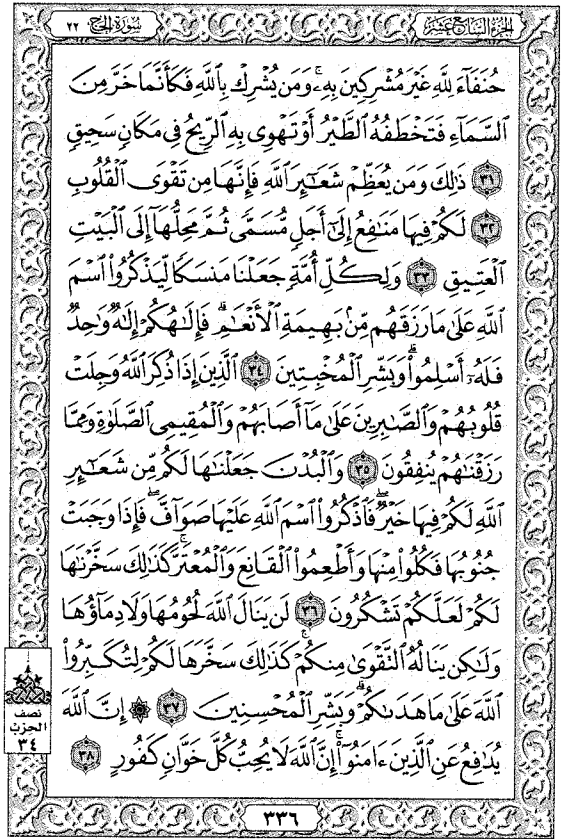 سُورَةُ الحَجِّ ٢٢
الجُزْءُ السَّابِعُ عَشَرَ
حُنَفَآءَ لِلَّهِ غَيۡرَ مُشۡرِكِينَ بِهِۦۚ وَمَن يُشۡرِكۡ بِٱللَّهِ فَكَأَنَّمَا خَرَّ مِنَ
ٱلسَّمَآءِ فَتَخۡطَفُهُ ٱلطَّيۡرُ أَوۡ تَهۡوِي بِهِ ٱلرِّيحُ فِي مَكَانٖ سَحِيقٖ
٣١ ذَٰلِكَۖ وَمَن يُعَظِّمۡ شَعَٰٓئِرَ ٱللَّهِ فَإِنَّهَا مِن تَقۡوَى ٱلۡقُلُوبِ
٣٢ لَكُمۡ فِيهَا مَنَٰفِعُ إِلَىٰٓ أَجَلٖ مُّسَمّٗى ثُمَّ مَحِلُّهَآ إِلَى ٱلۡبَيۡتِ
ٱلۡعَتِيقِ ٣٣ وَلِكُلِّ أُمَّةٖ جَعَلۡنَا مَنسَكٗا لِّيَذۡكُرُواْ ٱسۡمَ
ٱللَّهِ عَلَىٰ مَا رَزَقَهُم مِّنۢ بَهِيمَةِ ٱلۡأَنۡعَٰمِۗ فَإِلَٰهُكُمۡ إِلَٰهٞ وَٰحِدٞ
فَلَهُۥٓ أَسۡلِمُواْۗ وَبَشِّرِ ٱلۡمُخۡبِتِينَ ٣٤ ٱلَّذِينَ إِذَا ذُكِرَ ٱللَّهُ وَجِلَتۡ
قُلُوبُهُمۡ وَٱلصَّٰبِرِينَ عَلَىٰ مَآ أَصَابَهُمۡ وَٱلۡمُقِيمِي ٱلصَّلَوٰةِ وَمِمَّا
رَزَقۡنَٰهُمۡ يُنفِقُونَ ٣٥ وَٱلۡبُدۡنَ جَعَلۡنَٰهَا لَكُم مِّن شَعَٰٓئِرِ
ٱللَّهِ لَكُمۡ فِيهَا خَيۡرٞۖ فَٱذۡكُرُواْ ٱسۡمَ ٱللَّهِ عَلَيۡهَا صَوَآفَّۖ فَإِذَا وَجَبَتۡ
جُنُوبُهَا فَكُلُواْ مِنۡهَا وَأَطۡعِمُواْ ٱلۡقَانِعَ وَٱلۡمُعۡتَرَّۚ كَذَٰلِكَ سَخَّرۡنَٰهَا
لَكُمۡ لَعَلَّكُمۡ تَشۡكُرُونَ ٣٦ لَن يَنَالَ ٱللَّهَ لُحُومُهَا وَلَا دِمَآؤُهَا
وَلَٰكِن يَنَالُهُ ٱلتَّقۡوَىٰ مِنكُمۡۚ كَذَٰلِكَ سَخَّرَهَا لَكُمۡ لِتُكَبِّرُواْ
ٱللَّهَ عَلَىٰ مَا هَدَىٰكُمۡۗ وَبَشِّرِ ٱلۡمُحۡسِنِينَ ٣٧ ۞ إِنَّ ٱللَّهَ
يُدَٰفِعُ عَنِ ٱلَّذِينَ ءَامَنُوٓاْۗ إِنَّ ٱللَّهَ لَا يُحِبُّ كُلَّ خَوَّانٖ كَفُورٍ ٣٨
نصف
الحزب
٣٤
٣٣٦